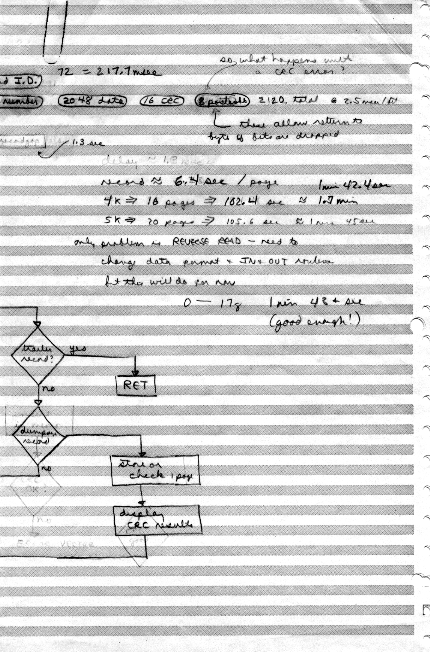 so, what happens with
a CRC error?
72 = 217.7 msec
d I.D.
number 2048 data 16 CRC 8 postamble 2120 total @ 2.5 msec/bit
these allow return to
byte if bits are dropped
1.3 sec
delay ≈ 1.8
record ≈ 6.4 sec / page 1 min 42.4 sec
4K ⇒ 16 pages ⇒ 102.4 sec ≈ 1.7 min
5K ⇒ 20 pages ⇒ 105.6 sec ≈ 1 min 45 sec
only problem is REVERSE READ - need to
change data format + IN + OUT routines
but this will do for now
0 — 17₈ 1 min 43+ sec
(good enough!)
trailer
record?
yes
RET
no
dump
record
no
store or
check 1 page
display
CRC results
no